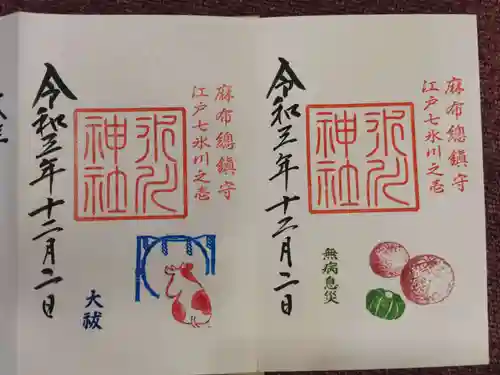 麻布總鎮守
江戸七氷川之壱
氷川神社
無病息災
令和三年十二月二日
麻布總鎮守
江戸七氷川之壱
氷川神社
大祓
令和三年十二月二日